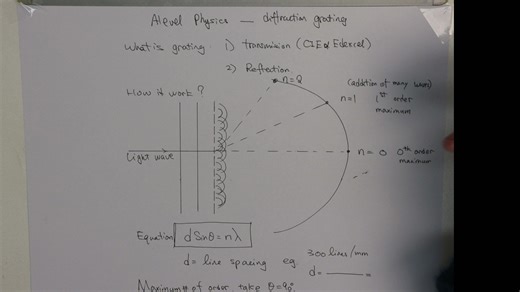 Alevel Physics — diffraction grating
What is grating. 1) transmission (CIE & Edexcel)
2) Reflection
n=2
How it work?
(addition of many waves)
n=1 1st order
maximum
Light wave
n = 0 0th order
maximum
Equation d Sinθ = nλ
d = line spacing eg. 300 lines/mm
d = ——— =
Maximum of order take θ=90°